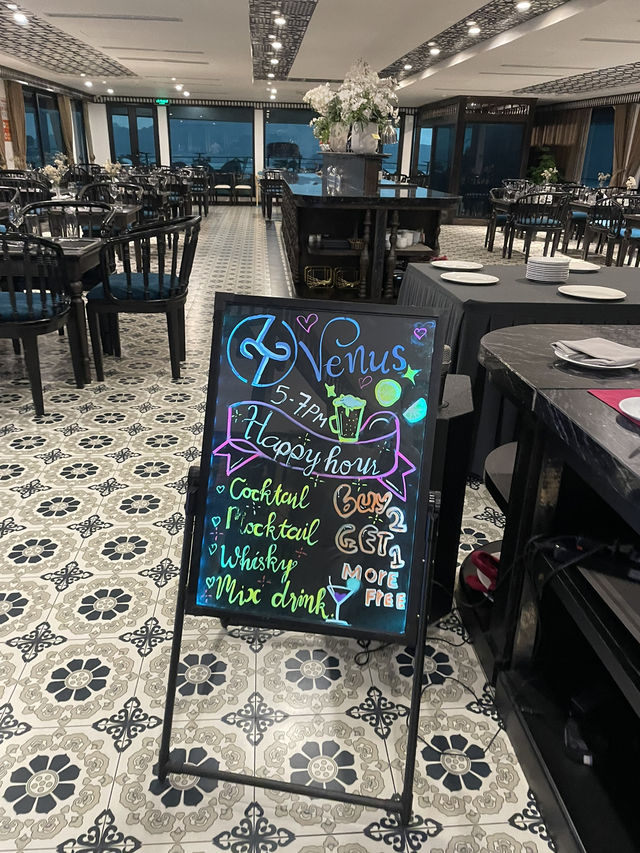 Venus
5-7PM
Happy hour
Cocktail
Mocktail
Whisky
Mix drink
BUY 2
GET 1
MORE
FREE